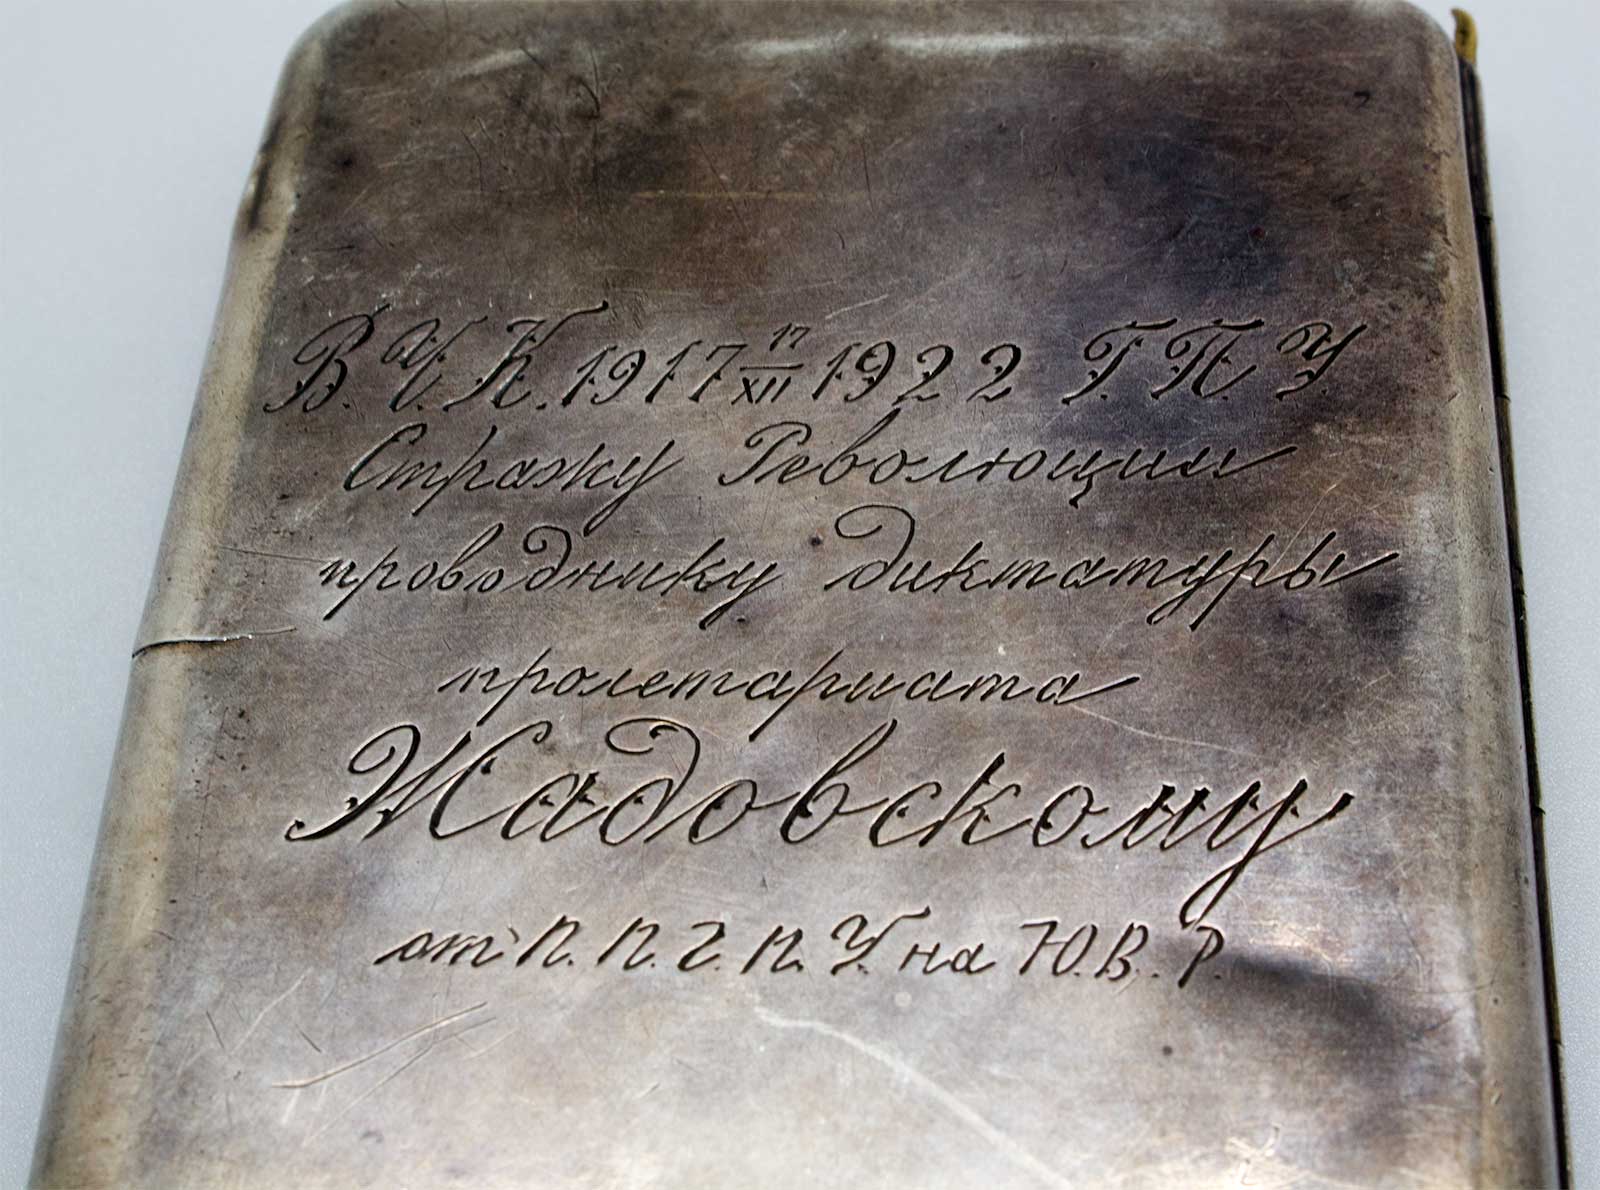 В.Ч.К. 1917 17/XII 1922 Г.П.У
Стражу Революции
проводнику диктатуры
пролетариата
Жадовскому
от П.П.Г.П.У. на Ю.В.Р.